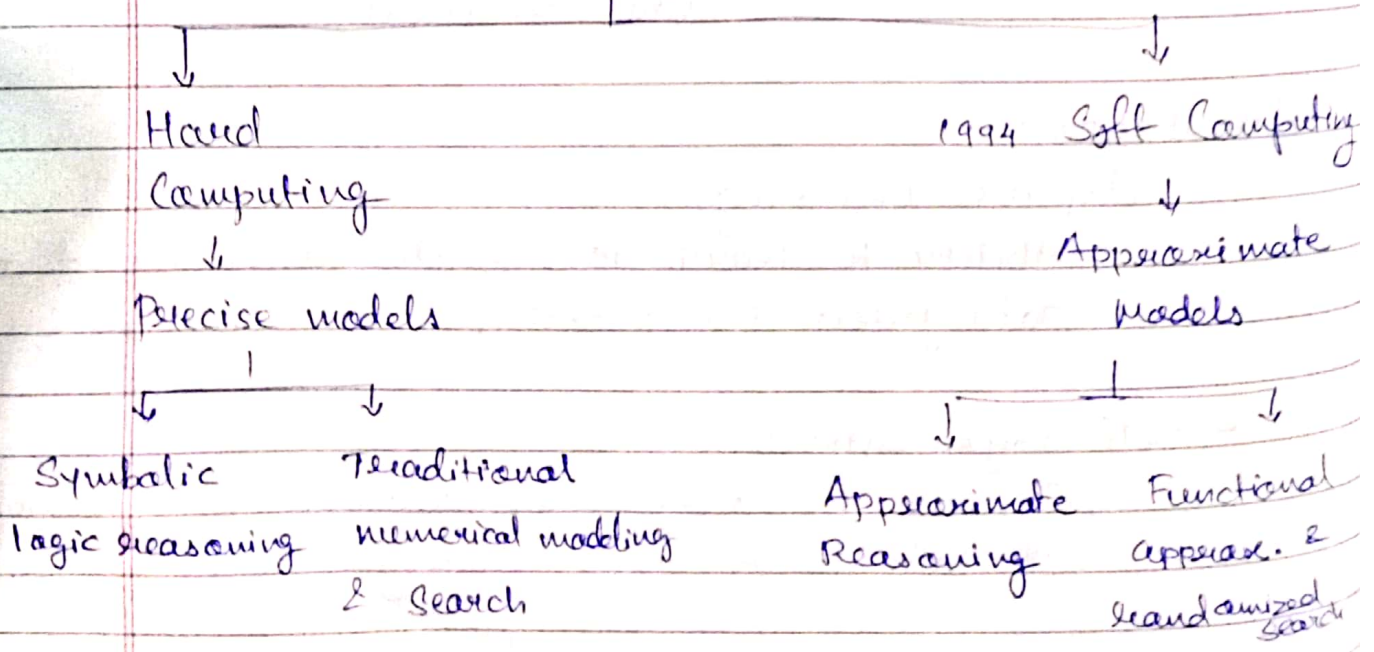 Hard
Computing
Precise models
Symbolic
logic reasoning
Traditional
numerical modeling
& Search
1994 Soft Computing
Approximate
Models
Approximate
Reasoning
Functional
approx. &
randomized
search